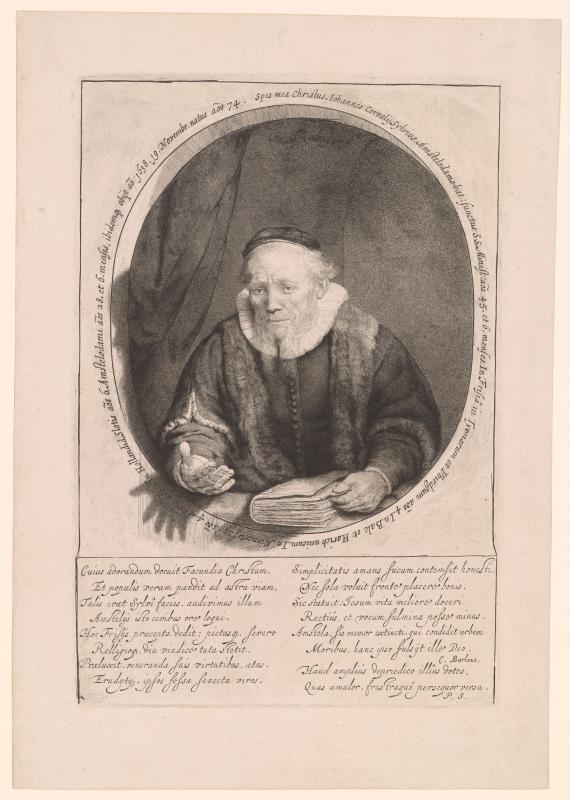 Spes mea Christus. Iohannes Cornely Sylvius Amstelodamobat: functus S.S. Minist: aōs 45. et 6. menses In Frisia in Tyemarum et Phirdgum aōs 4. In Balc et Harich unicum In Minnertsga aōs 4. Slotis aōs 6 Amstelodami aōs 28. et 6. menses, ibidemq obyt aō. 1638. 19 Novembr. natus aōs 74.
Cuius adorandum docuit Facundia Christum,
Et populis veram pandit ad astra viam,
Talis erat Sylvi facies. audivimus illum
Amstelijs isto civibus ore loqui.
Hoc Frisijs præcepta dedit; pietasq. severo
Relligioq. diu vindice tuta stetit.
Præluxit, veneranda suis virtutibus, ætas.
Erudytq. ipsos fessa senecta viros.
Simplicitatis amans fucum contemsit honesti,
Nec sola voluit fronte placere bonis.
Sic statuit: Iesum vita meliore doceri
Rectiùs, et vocum fulmina posse minus.
Amstela, sis memor extincti, qui condidit urbem
Moribus, hanc ipso fulsijt ille Deo.
C. Barleus.
Haud amplius deprædico illius dotes,
Quas æmulor, frustraque persequor versu.
P. S.